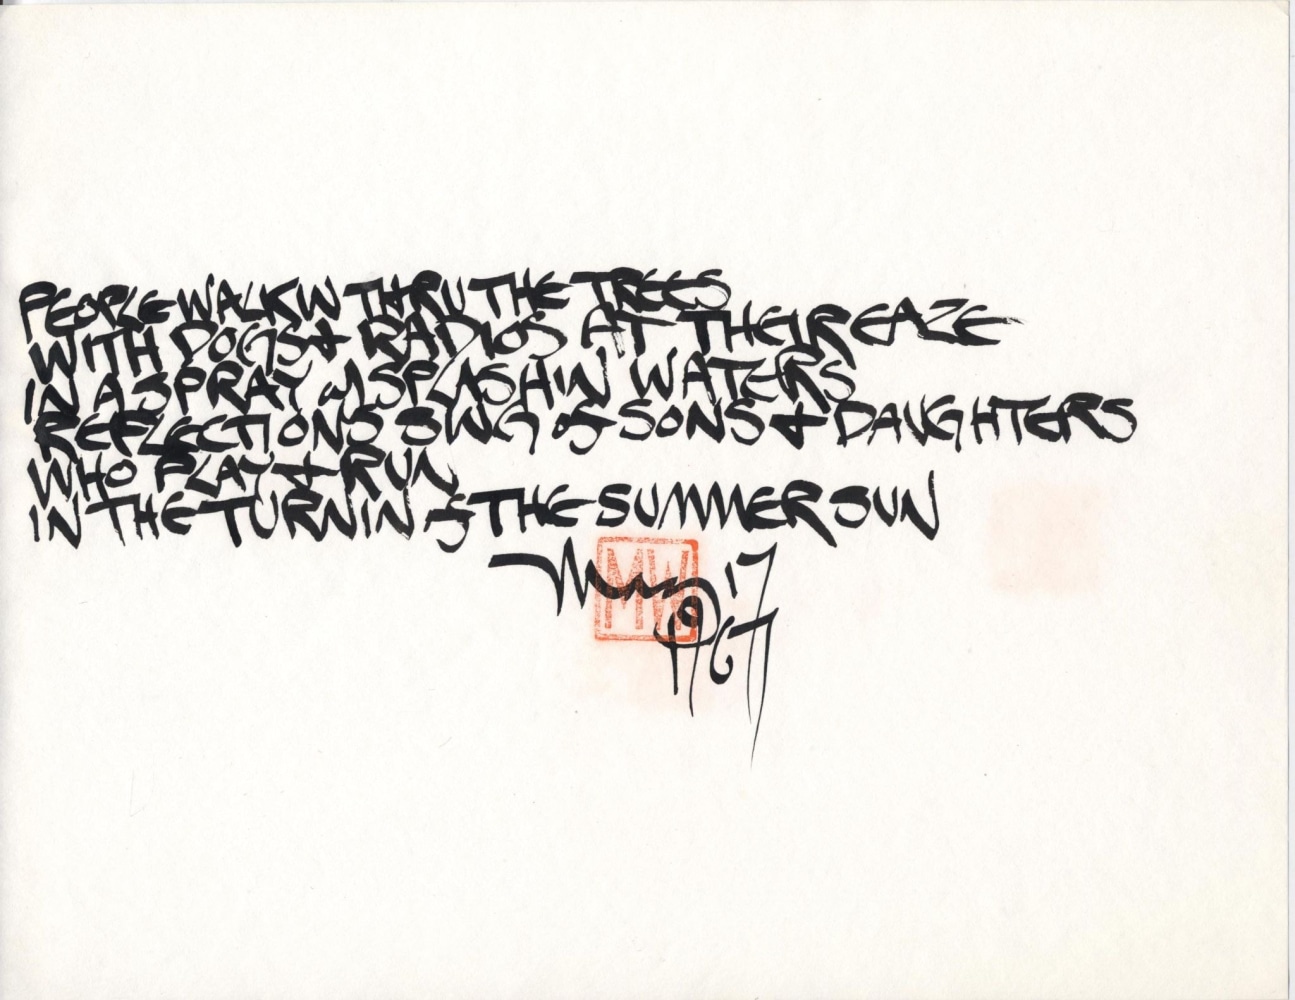 PEOPLE WALKIN THRU THE TREES
WITH DOGS & RADIOS AT THEIR EAZE
IN A SPRAY of SPLASHIN WATERS
REFLECTIONS SING of SONS & DAUGHTERS
WHO PLAY & RUN
IN THE TURNIN of THE SUMMER SUN
MW
17